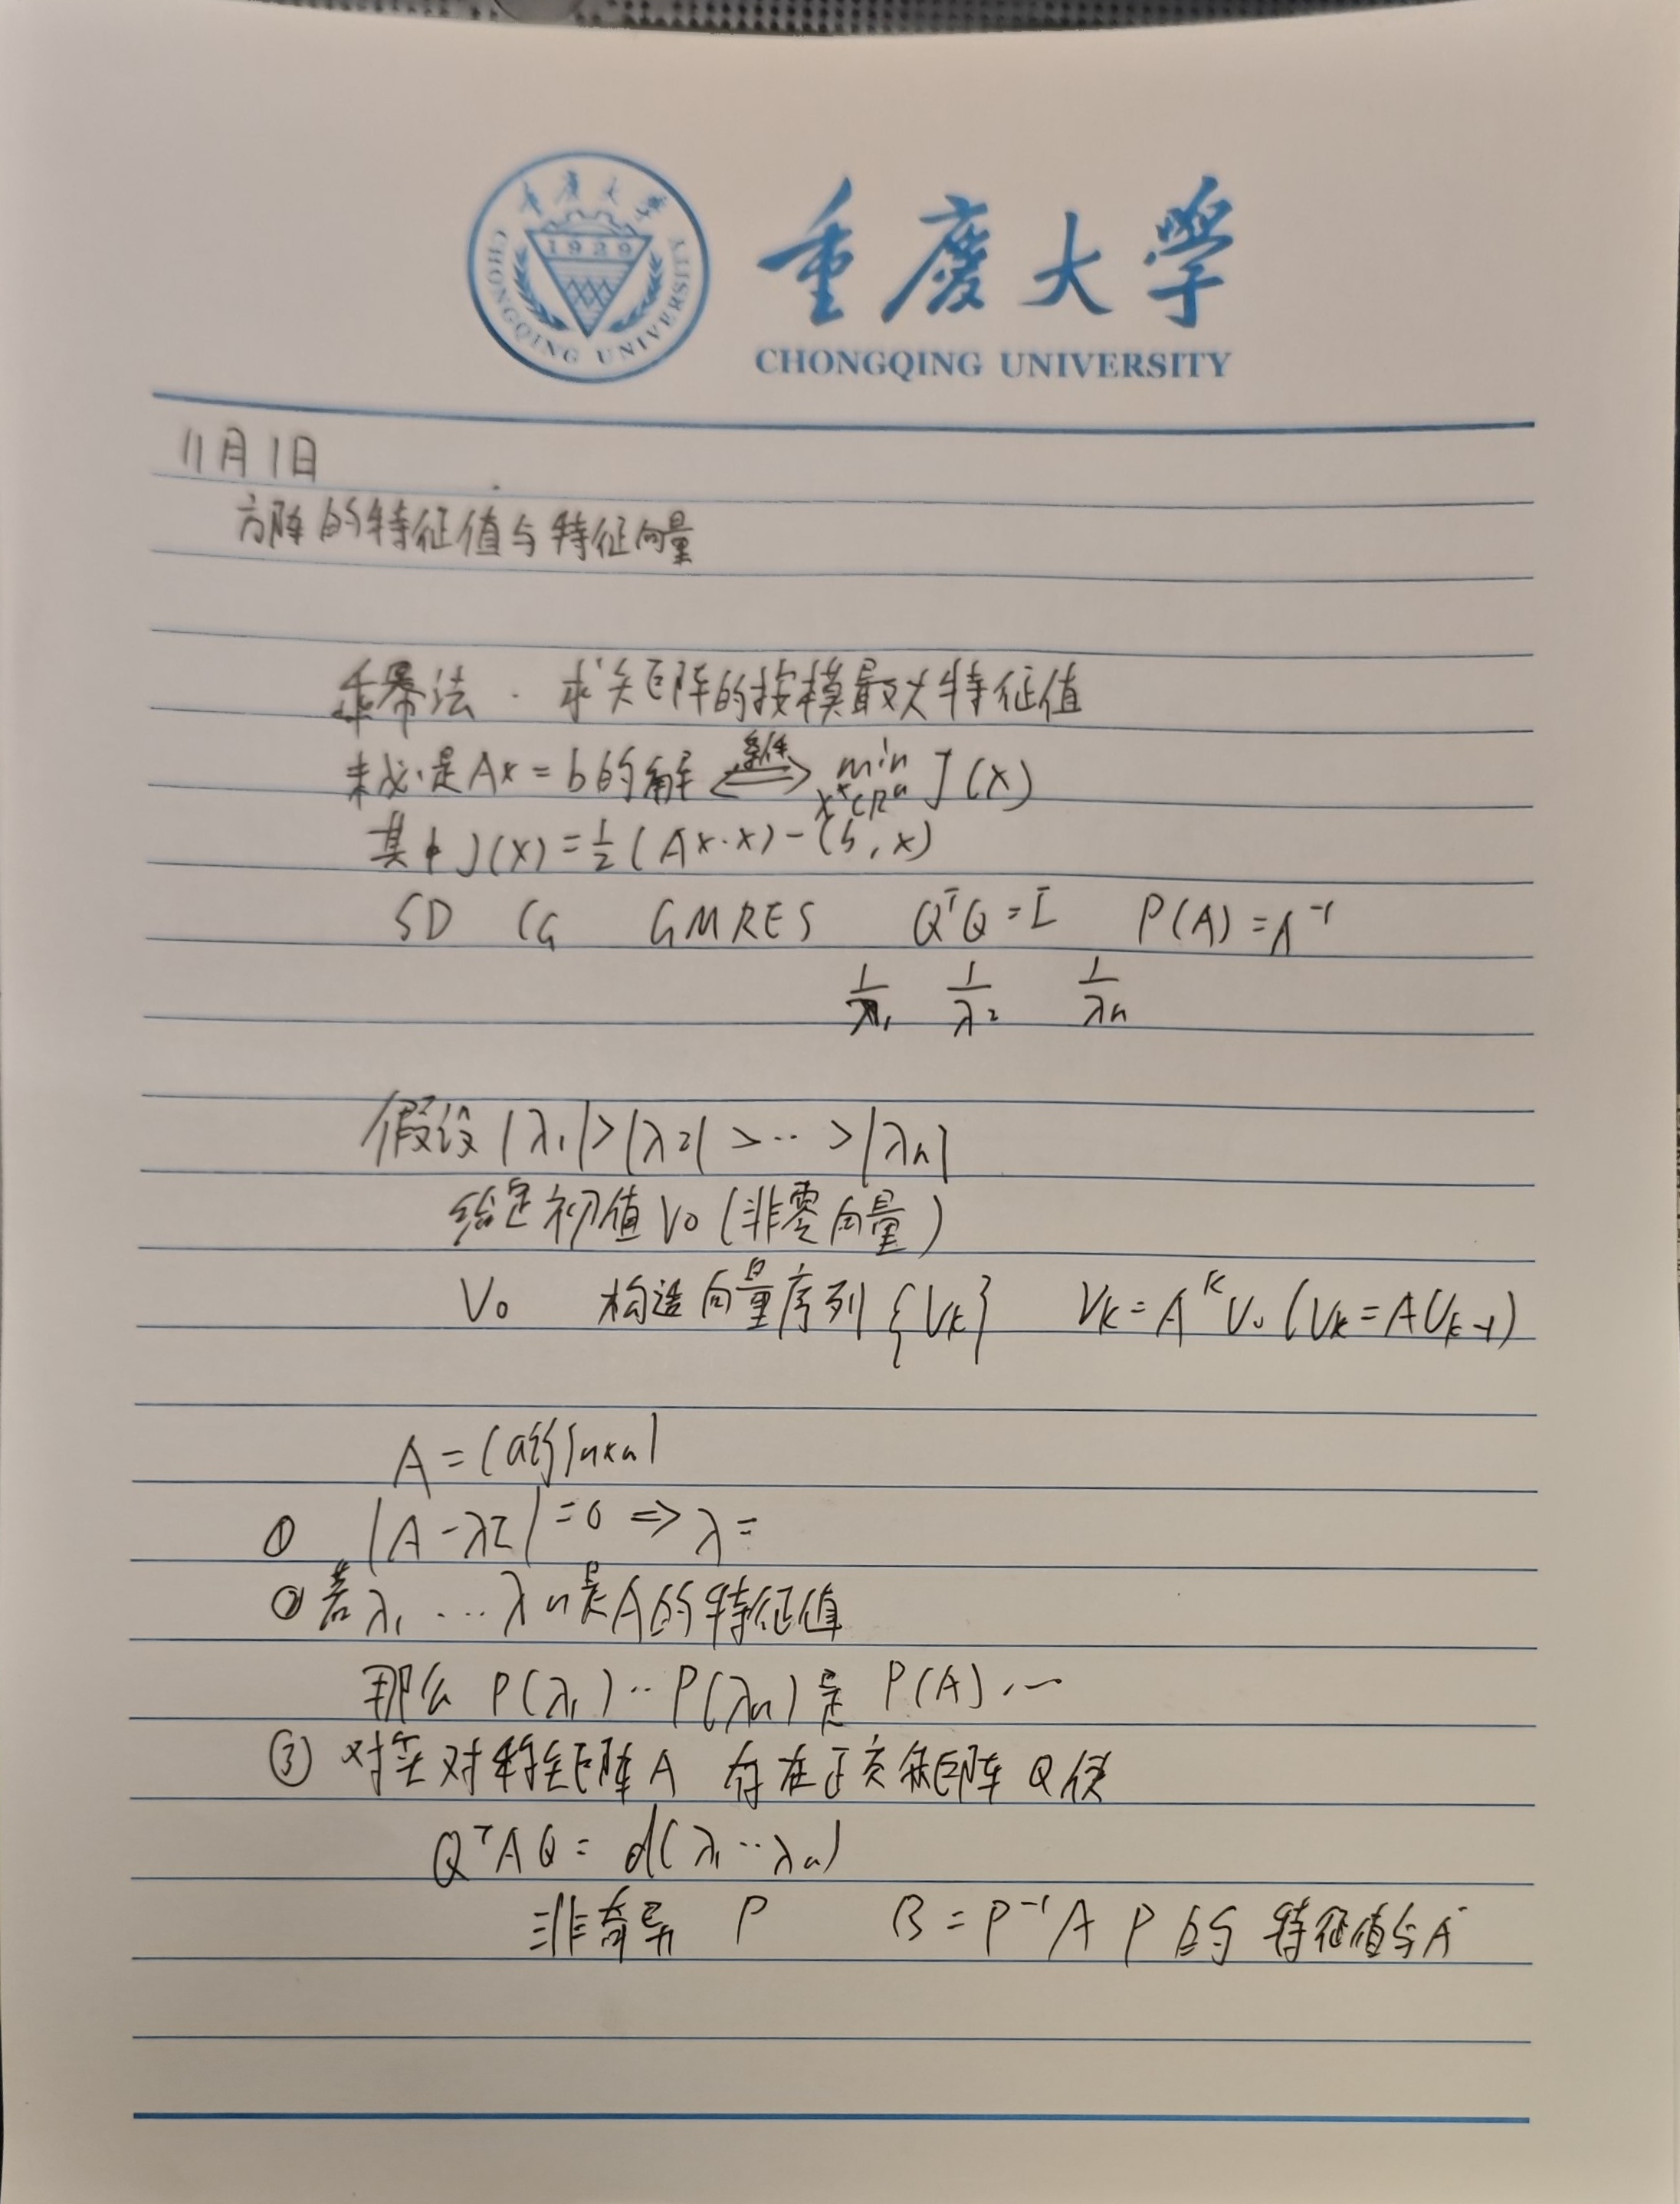 重庆大学
1929
CHONGQING UNIVERSITY
重慶大學
CHONGQING UNIVERSITY
11月1日
方阵的特征值与特征向量
乘幂法 · 求矩阵的按模最大特征值
是Ax=b的解 ⟺ min J(x)
x*∈Rⁿ
其中J(x)=½(Ax·x)-(b,x)
SD CG GMRES QᵀQ=I P(A)=A⁻¹
1/λ₁ 1/λ₂ 1/λn
假设|λ₁|>|λ2|>…>|λn|
给定初值V0(非零向量)
V0 构造向量序列{Vk} Vk=AᵏV0(Vk=AVk-1)
A=(aij)n×n
① |A-λI|=0 ⇒ λ=
② 若λ₁…λn是A的特征值
那么 P(λ₁)…P(λn)是 P(A)…
③ 对实对称矩阵A 存在正交矩阵Q使
QᵀAQ=d(λ₁…λn)
非奇异 P B=P⁻¹AP的 特征值与A